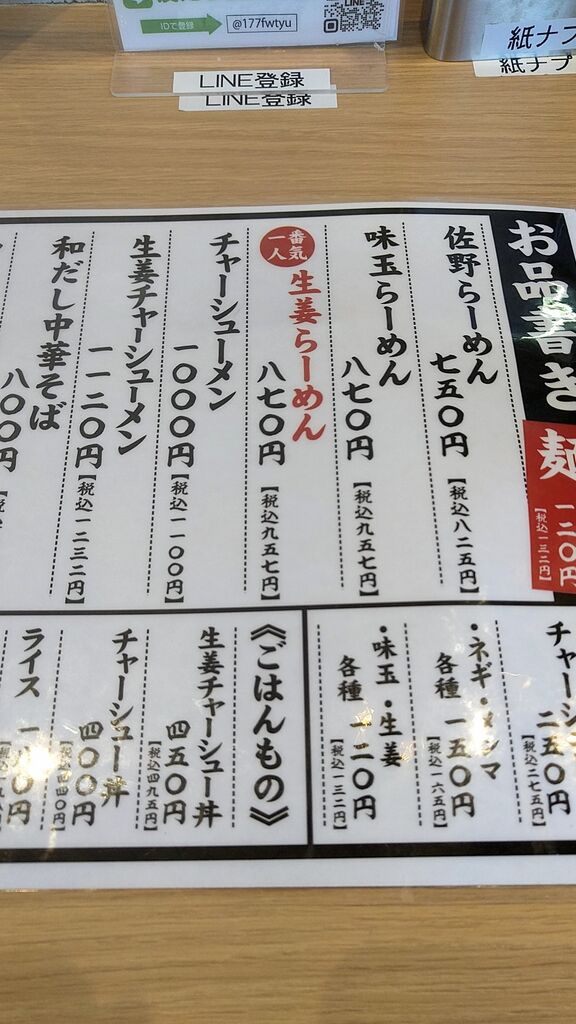 IDで登録
@177fwtyu
LINE
LINE登録
LINE登録
紙ナプ
紙ナプ
お品書き
麺
一二〇円
【税込一三二円】
佐野らーめん
七五〇円
【税込八二五円】
味玉らーめん
八七〇円
【税込九五七円】
一番人気
生姜らーめん
八七〇円
【税込九五七円】
チャーシューメン
一〇〇〇円
【税込一一〇〇円】
生姜チャーシューメン
一一二〇円
【税込一二三二円】
和だし中華そば
八〇〇円
【税込
チャーシ
二五〇円
【税込二七五円】
・ネギ・メンマ
各種 一五〇円
【税込一六五円】
・味玉・生姜
各種 一二〇円
【税込一三二円】
《ごはんもの》
生姜チャーシュー丼
四五〇円
【税込四九五円】
チャーシュー丼
四〇〇円
【税込四四〇円】
ライス 一八〇円